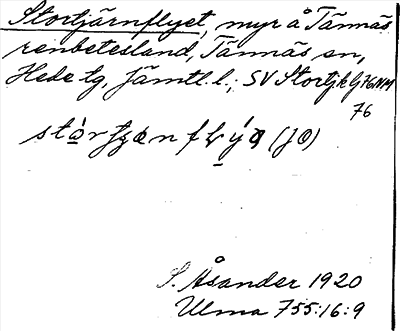 Stortjärnflyet, myr å Tännäs
renbetesland, Tännäs sn,
Hede tg, Jämtl. l.; SV Stortj
76
S. Åsander 1920
Ulma 755:16:9